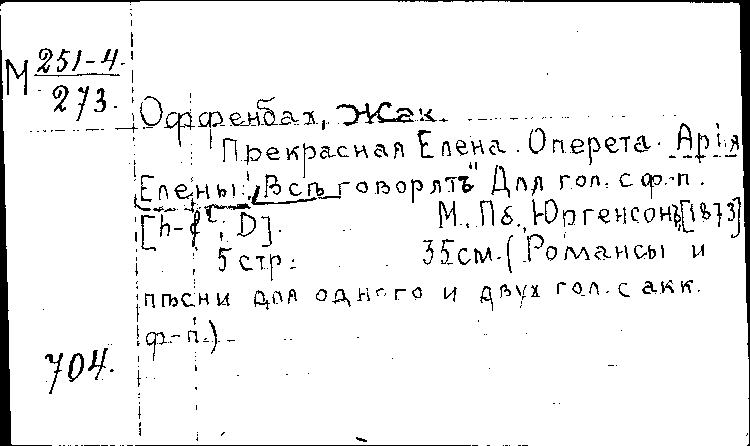 М 251-4.
273.
Оффенбах, Жак.
Прекрасная Елена. Оперета. Арiя
Елены: „Всѣ говорятъ" Для гол. с ф.-п.
[h-f²; D]. М., Пб., Юргенсонъ, [1873]
5 стр. 35 см. (Романсы и
пѣсни для одного и двух гол. с акк.
ф-п.)
704.